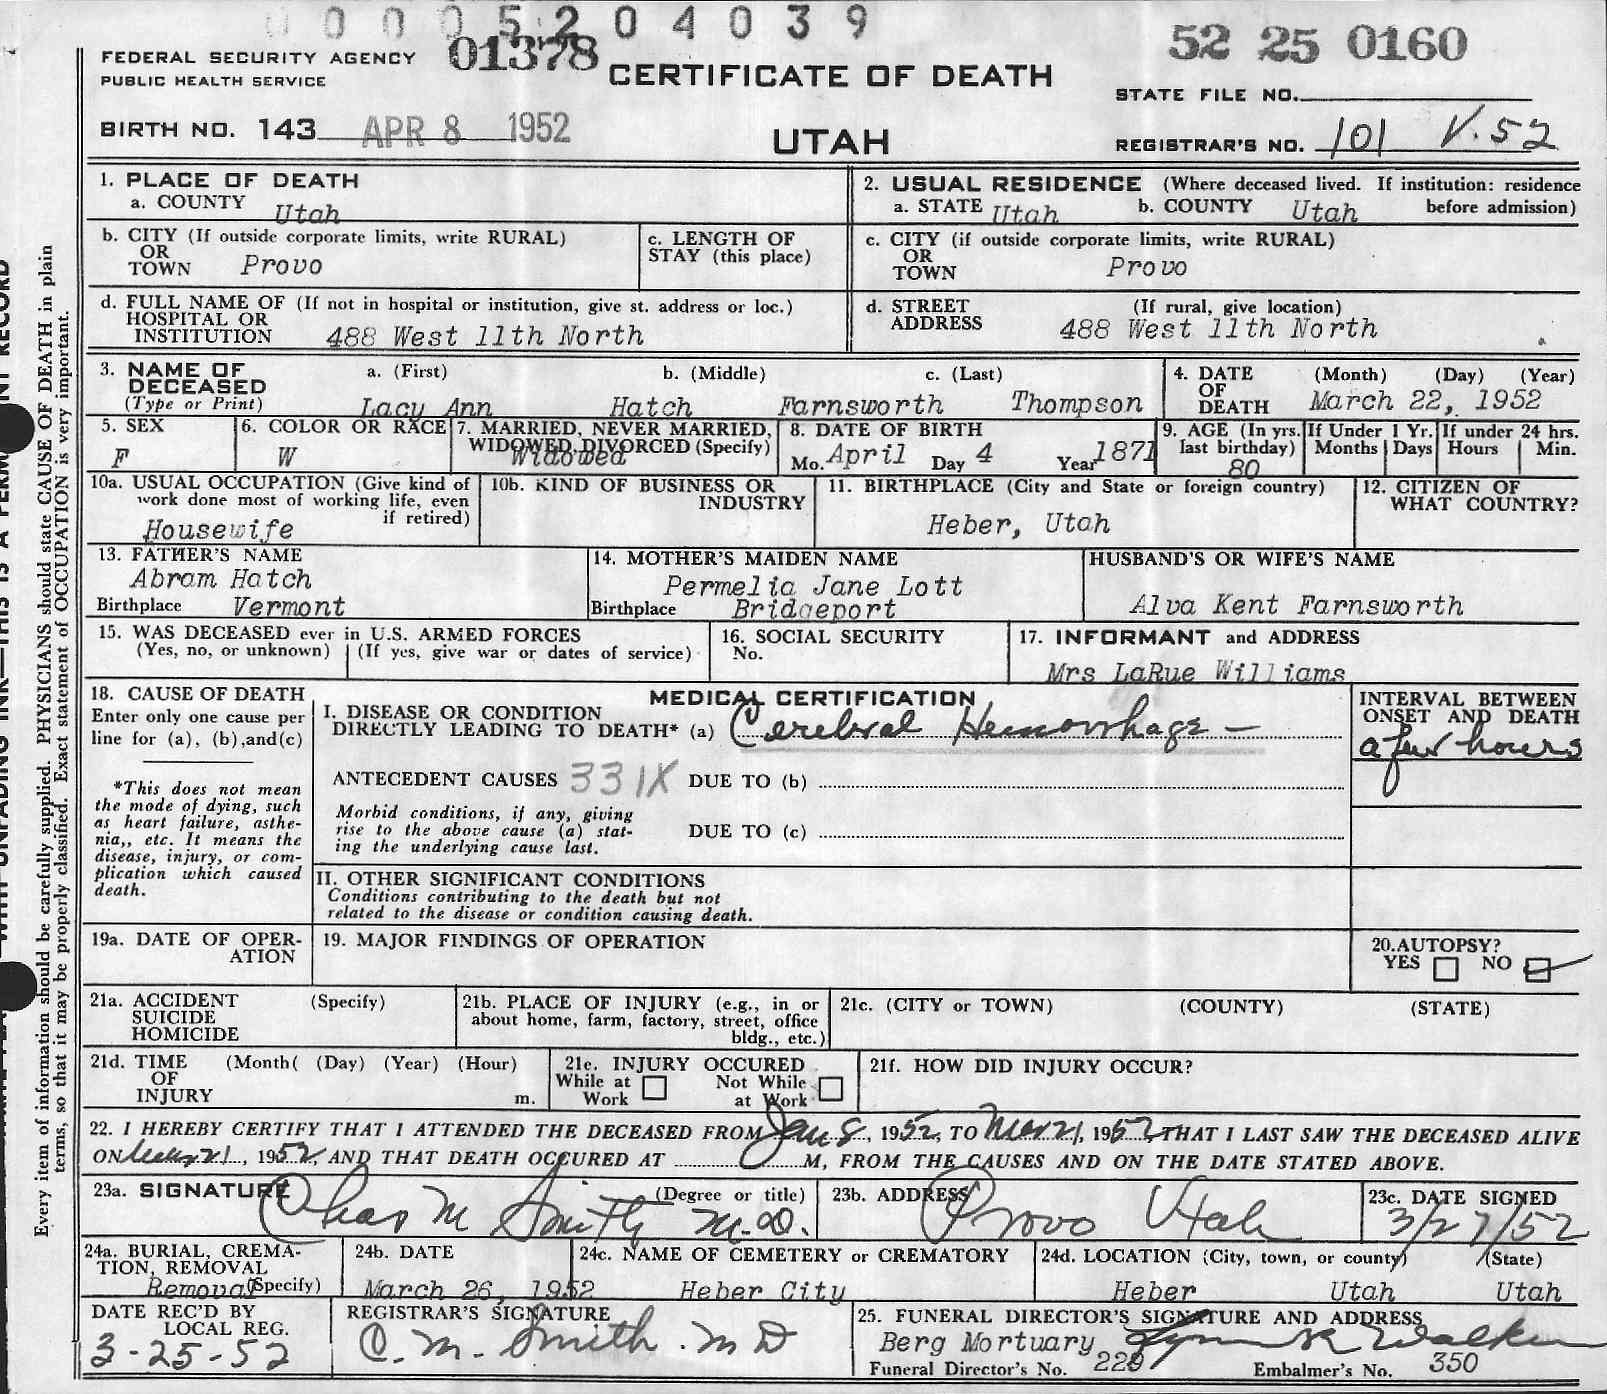 0 0 0 5 2 0 4 0 3 9
FEDERAL SECURITY AGENCY 01378 52 25 0160
PUBLIC HEALTH SERVICE CERTIFICATE OF DEATH
STATE FILE NO.
BIRTH NO. 143 APR 8 1952 UTAH REGISTRAR'S NO. 101 V. 52
1. PLACE OF DEATH
a. COUNTY Utah
2. USUAL RESIDENCE (Where deceased lived. If institution: residence
a. STATE Utah b. COUNTY Utah before admission)
b. CITY (If outside corporate limits, write RURAL)
OR
TOWN Provo
c. LENGTH OF
STAY (this place)
c. CITY (if outside corporate limits, write RURAL)
OR
TOWN Provo
d. FULL NAME OF (If not in hospital or institution, give st. address or loc.)
HOSPITAL OR
INSTITUTION 488 West 11th North
d. STREET (If rural, give location)
ADDRESS 488 West 11th North
3. NAME OF a. (First) b. (Middle) c. (Last)
DECEASED
(Type or Print) Lacy Ann Hatch Farnsworth Thompson
4. DATE (Month) (Day) (Year)
OF
DEATH March 22, 1952
5. SEX
F
6. COLOR OR RACE
W
7. MARRIED, NEVER MARRIED,
WIDOWED, DIVORCED (Specify)
Widowed
8. DATE OF BIRTH
Mo. April Day 4 Year 1871
9. AGE (In yrs.
last birthday)
80
If Under 1 Yr.
Months Days
If under 24 hrs.
Hours Min.
10a. USUAL OCCUPATION (Give kind of
work done most of working life, even
if retired)
Housewife
10b. KIND OF BUSINESS OR
INDUSTRY
11. BIRTHPLACE (City and State or foreign country)
Heber, Utah
12. CITIZEN OF
WHAT COUNTRY?
13. FATHER'S NAME
Abram Hatch
Birthplace Vermont
14. MOTHER'S MAIDEN NAME
Permelia Jane Lott
Birthplace Bridgeport
HUSBAND'S OR WIFE'S NAME
Alva Kent Farnsworth
15. WAS DECEASED ever in U.S. ARMED FORCES
(Yes, no, or unknown) (If yes, give war or dates of service)
16. SOCIAL SECURITY
No.
17. INFORMANT and ADDRESS
Mrs LaRue Williams
18. CAUSE OF DEATH
Enter only one cause per
line for (a), (b),and(c)
*This does not mean
the mode of dying, such
as heart failure, asthe-
nia,, etc. It means the
disease, injury, or com-
plication which caused
death.
MEDICAL CERTIFICATION
I. DISEASE OR CONDITION
DIRECTLY LEADING TO DEATH* (a) Cerebral Hemorrhage -
ANTECEDENT CAUSES 331X DUE TO (b)
Morbid conditions, if any, giving
rise to the above cause (a) stat-
ing the underlying cause last.
DUE TO (c)
INTERVAL BETWEEN
ONSET AND DEATH
a few hours
II. OTHER SIGNIFICANT CONDITIONS
Conditions contributing to the death but not
related to the disease or condition causing death.
19a. DATE OF OPER-
ATION
19. MAJOR FINDINGS OF OPERATION
20.AUTOPSY?
YES NO
21a. ACCIDENT (Specify)
SUICIDE
HOMICIDE
21b. PLACE OF INJURY (e.g., in or
about home, farm, factory, street, office
bldg., etc.)
21c. (CITY or TOWN) (COUNTY) (STATE)
21d. TIME (Month( (Day) (Year) (Hour)
OF
INJURY m.
21e. INJURY OCCURED
While at Not While
Work at Work
21f. HOW DID INJURY OCCUR?
22. I HEREBY CERTIFY THAT I ATTENDED THE DECEASED FROM Jan 8, 1952, TO Mar 21, 1952, THAT I LAST SAW THE DECEASED ALIVE
ON Mar 21, 1952, AND THAT DEATH OCCURED AT M, FROM THE CAUSES AND ON THE DATE STATED ABOVE.
23a. SIGNATURE (Degree or title)
Chas M Smith M.D.
23b. ADDRESS
Provo Utah
23c. DATE SIGNED
3/27/52
24a. BURIAL, CREMA-
TION, REMOVAL
Removal (Specify)
24b. DATE
March 26, 1952
24c. NAME OF CEMETERY or CREMATORY
Heber City
24d. LOCATION (City, town, or county) (State)
Heber Utah Utah
DATE REC'D BY
LOCAL REG.
3-25-52
REGISTRAR'S SIGNATURE
C. M. Smith. MD
25. FUNERAL DIRECTOR'S SIGNATURE AND ADDRESS
Berg Mortuary
Funeral Director's No. 229 Embalmer's No. 350
Every item of information should be carefully supplied. PHYSICIANS should state CAUSE OF DEATH in plain
terms, so that it may be properly classified. Exact statement of OCCUPATION is very important.